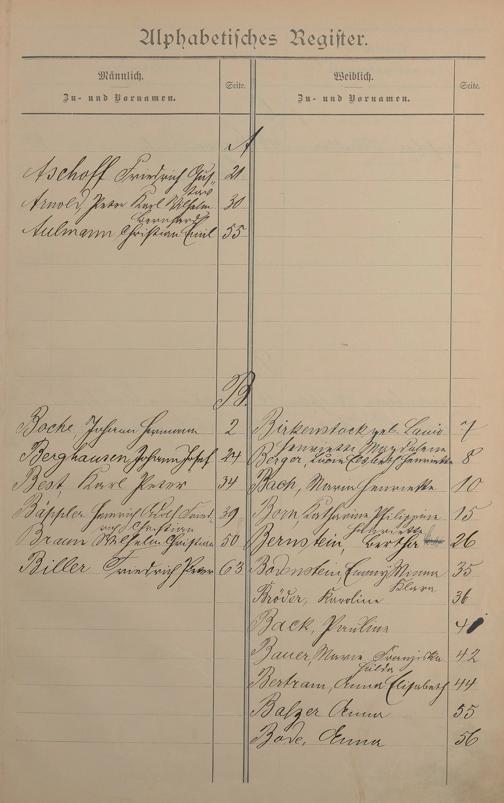 Alphabetisches Register.
Männlich. Seite. Weiblich. Seite.
Zu- und Vornamen. Zu- und Vornamen.
A
Aschoff Friedrich Gus- 21
tav
Arnold, Peter Karl Wilhelm 30
Bernhard
Aulmann Christian Emil 55
B.
Boche, Johann Hermann 2
Berghausen, Johann Josef 24
Best, Karl Peter 34
Bäppler Heinrich Adolf Fried- 39
rich Christian
Braun Wilhelm Christian 50
Biller Friedrich Peter 63
Birkenstock, geb. 7
Henriette Magdalene
Berger, Elisabeth Henriette 8
Bach, Maria Henriette 10
Born, Katharine Philippine 15
Henriette
Bernstein, Bertha 26
Bodenstein, Emmy Minna 35
Klara
Bröder, Karoline 36
Back, Pauline
Bauer, Marie Franziska 42
Hulda
Bertram, Anna Elisabeth 44
Balzer Anna 55
Bode, Anna 56